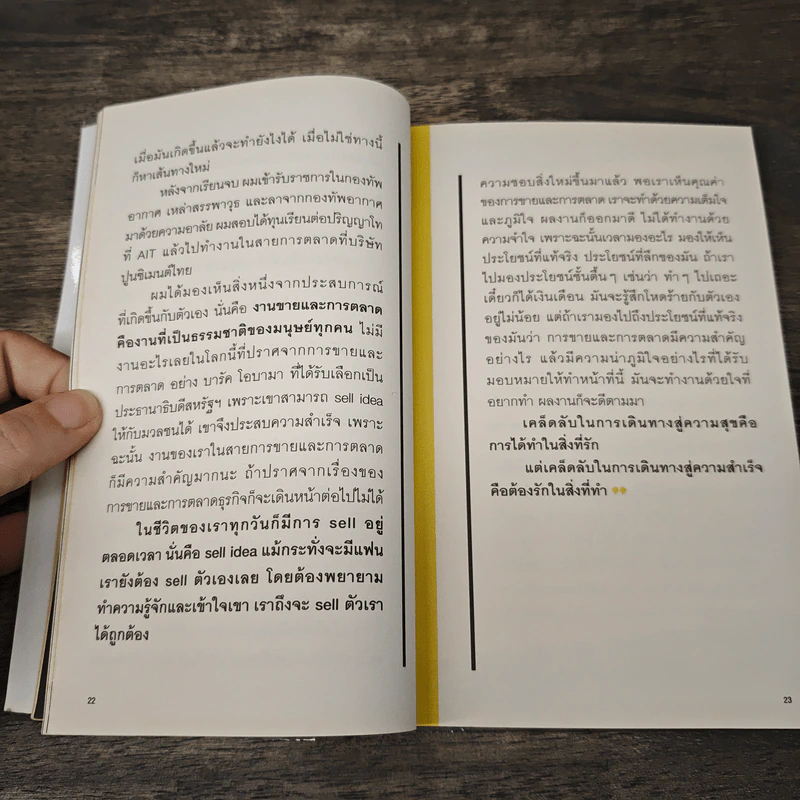 เมื่อมันเกิดขึ้นแล้วจะทำยังไงได้ เมื่อไม่ใช่ทางนี้
ก็หาเส้นทางใหม่
หลังจากเรียนจบ ผมเข้ารับราชการในกองทัพ
อากาศ เหล่าสรรพาวุธ และลาจากกองทัพอากาศ
มาด้วยความอาลัย ผมสอบได้ทุนเรียนต่อปริญญาโท
ที่ AIT แล้วไปทำงานในสายการตลาดที่บริษัท
ปูนซิเมนต์ไทย
ผมได้มองเห็นสิ่งหนึ่งจากประสบการณ์
ที่เกิดขึ้นกับตัวเอง นั่นคือ งานขายและการตลาด
คืองานที่เป็นธรรมชาติของมนุษย์ทุกคน ไม่มี
งานอะไรเลยในโลกนี้ที่ปราศจากการขายและ
การตลาด อย่าง บารัค โอบามา ที่ได้รับเลือกเป็น
ประธานาธิบดีสหรัฐฯ เพราะเขาสามารถ sell idea
ให้กับมวลชนได้ เขาจึงประสบความสำเร็จ เพราะ
ฉะนั้น งานของเราในสายการขายและการตลาด
ก็มีความสำคัญมากนะ ถ้าปราศจากเรื่องของ
การขายและการตลาดธุรกิจก็จะเดินหน้าต่อไปไม่ได้
ในชีวิตของเราทุกวันก็มีการ sell อยู่
ตลอดเวลา นั่นคือ sell idea แม้กระทั่งจะมีแฟน
เรายังต้อง sell ตัวเองเลย โดยต้องพยายาม
ทำความรู้จักและเข้าใจเขา เราถึงจะ sell ตัวเรา
ได้ถูกต้อง
22
ความชอบสิ่งใหม่ขึ้นมาแล้ว พอเราเห็นคุณค่า
ของการขายและการตลาด เราจะทำด้วยความเต็มใจ
และภูมิใจ ผลงานก็ออกมาดี ไม่ได้ทำงานด้วย
ความจำใจ เพราะฉะนั้นเวลามองอะไร มองให้เห็น
ประโยชน์ที่แท้จริง ประโยชน์ที่ลึกของมัน ถ้าเรา
ไปมองประโยชน์ชั้นตื้นๆ เช่นว่า ทำๆ ไปเถอะ
เดี๋ยวก็ได้เงินเดือน มันจะรู้สึกโหดร้ายกับตัวเอง
อยู่ไม่น้อย แต่ถ้าเรามองไปถึงประโยชน์ที่แท้จริง
ของมันว่า การขายและการตลาดมีความสำคัญ
อย่างไร แล้วมีความน่าภูมิใจอย่างไรที่ได้รับ
มอบหมายให้ทำหน้าที่นี้ มันจะทำงานด้วยใจที่
อยากทำ ผลงานก็จะดีตามมา
เคล็ดลับในการเดินทางสู่ความสุขคือ
การได้ทำในสิ่งที่รัก
แต่เคล็ดลับในการเดินทางสู่ความสำเร็จ
คือต้องรักในสิ่งที่ทำ ”
23